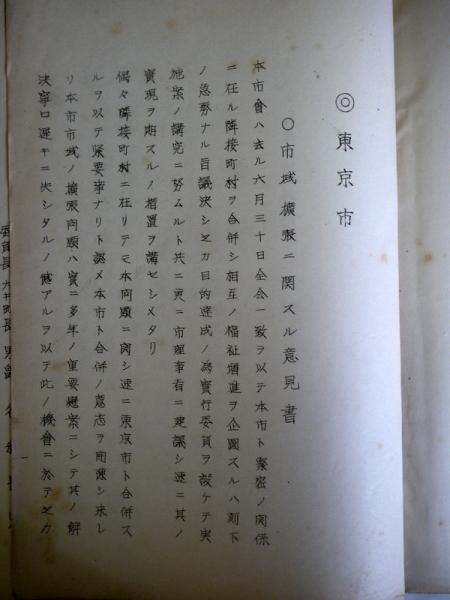 ◎東京市
○市域擴張ニ関スル意見書
本市會ハ去ル六月三十日全会一致ヲ以テ本市ト緊密ノ関係
ニ在ル隣接町村ヲ合併シ相互ノ福祉増進ヲ企圖スルハ刻下
ノ急務ナル旨議決シ之カ目的達成ノ為實行委員ヲ設ケテ実
施案ノ講究ニ努ムルト共ニ更ニ市理事者ニ建議シ速ニ其ノ
實現ヲ期スルノ措置ヲ講セシメタリ
偶々隣接町村ニ在リテモ本問題ニ関シ速ニ東京市ト合併ス
ルヲ以テ緊要事ナリト認メ本市ト合併ノ意志ヲ開陳シ来レ
リ本市市域ノ擴張問題ハ實ニ多年ノ重要懸案ニシテ其ノ解
決寧ロ遅キニ失シタルノ憾アルヲ以テ此ノ機會ニ於テ之カ
委員長 大井町長